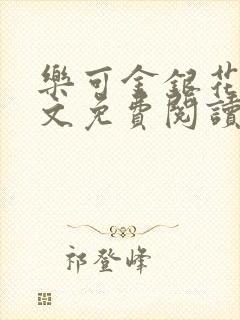 樂可金銀花
文免費閱讀
祁登峰